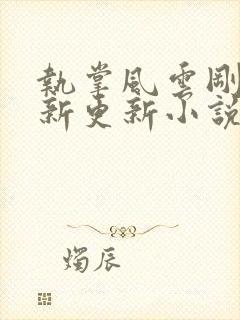 執掌風雲剛
新更新小說
燭辰